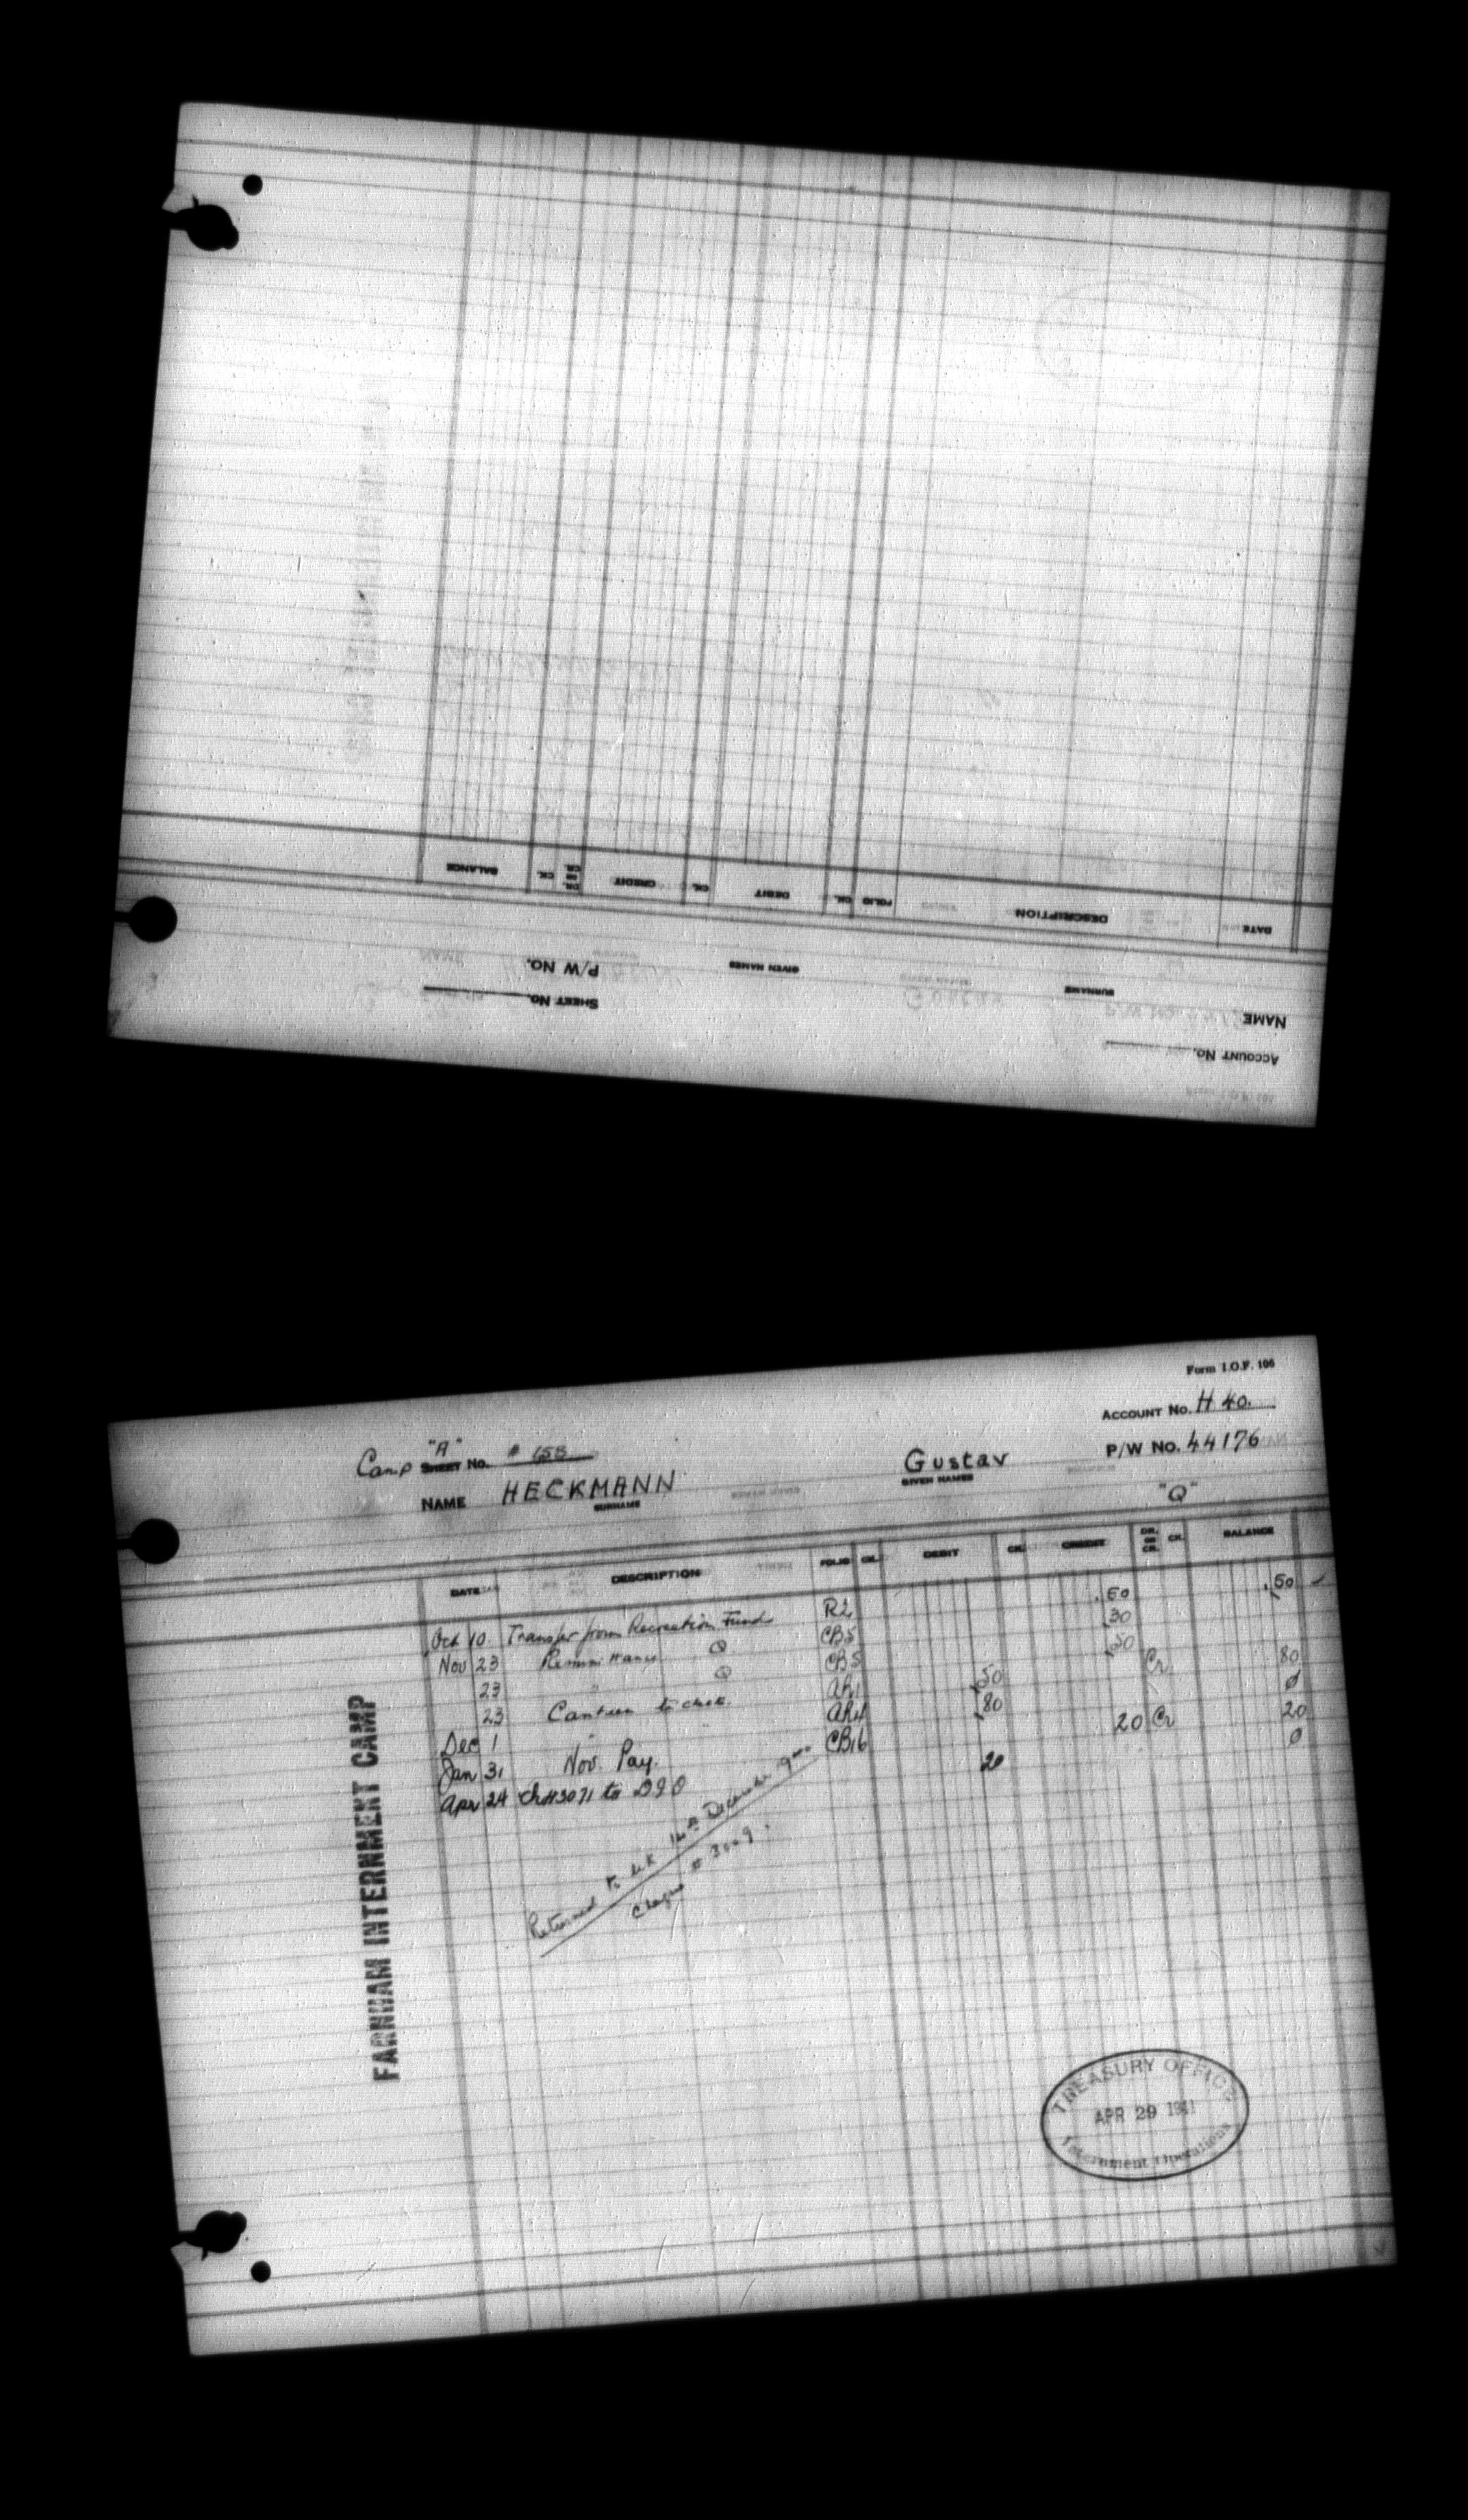 BALANCE CK. DR. OR CR. CREDIT CK. DEBIT CK. FOLIO DESCRIPTION DATE
P/W No. GIVEN NAMES SURNAME NAME
SHEET No. ACCOUNT No.
Form I.O.F. 106
ACCOUNT No. H 40.
Camp "A" SHEET No. # 155
P/W No. 44176
NAME HECKMANN Gustav
SURNAME GIVEN NAMES
"Q"
DATE DESCRIPTION FOLIO CK. DEBIT CK. CREDIT DR. OR CR. CK. BALANCE
Oct 10. Transfer from Recreation Fund R2 .50 .50
Nov 23 Remittance Q CB5 30
23 " Q CB5 50 Cr 80
23 Canteen to chek. AR1 50
Dec 1 " AR4 80 0
Jan 31 Nov. Pay. 20 Cr 20
Apr 24 Ch#3071 to DIO CB16 20 0
Returned to 16th December
Cheque # 3009.
FARNHAM INTERNMENT CAMP
TREASURY OFFICE
APR 29 1941
Internment Operations